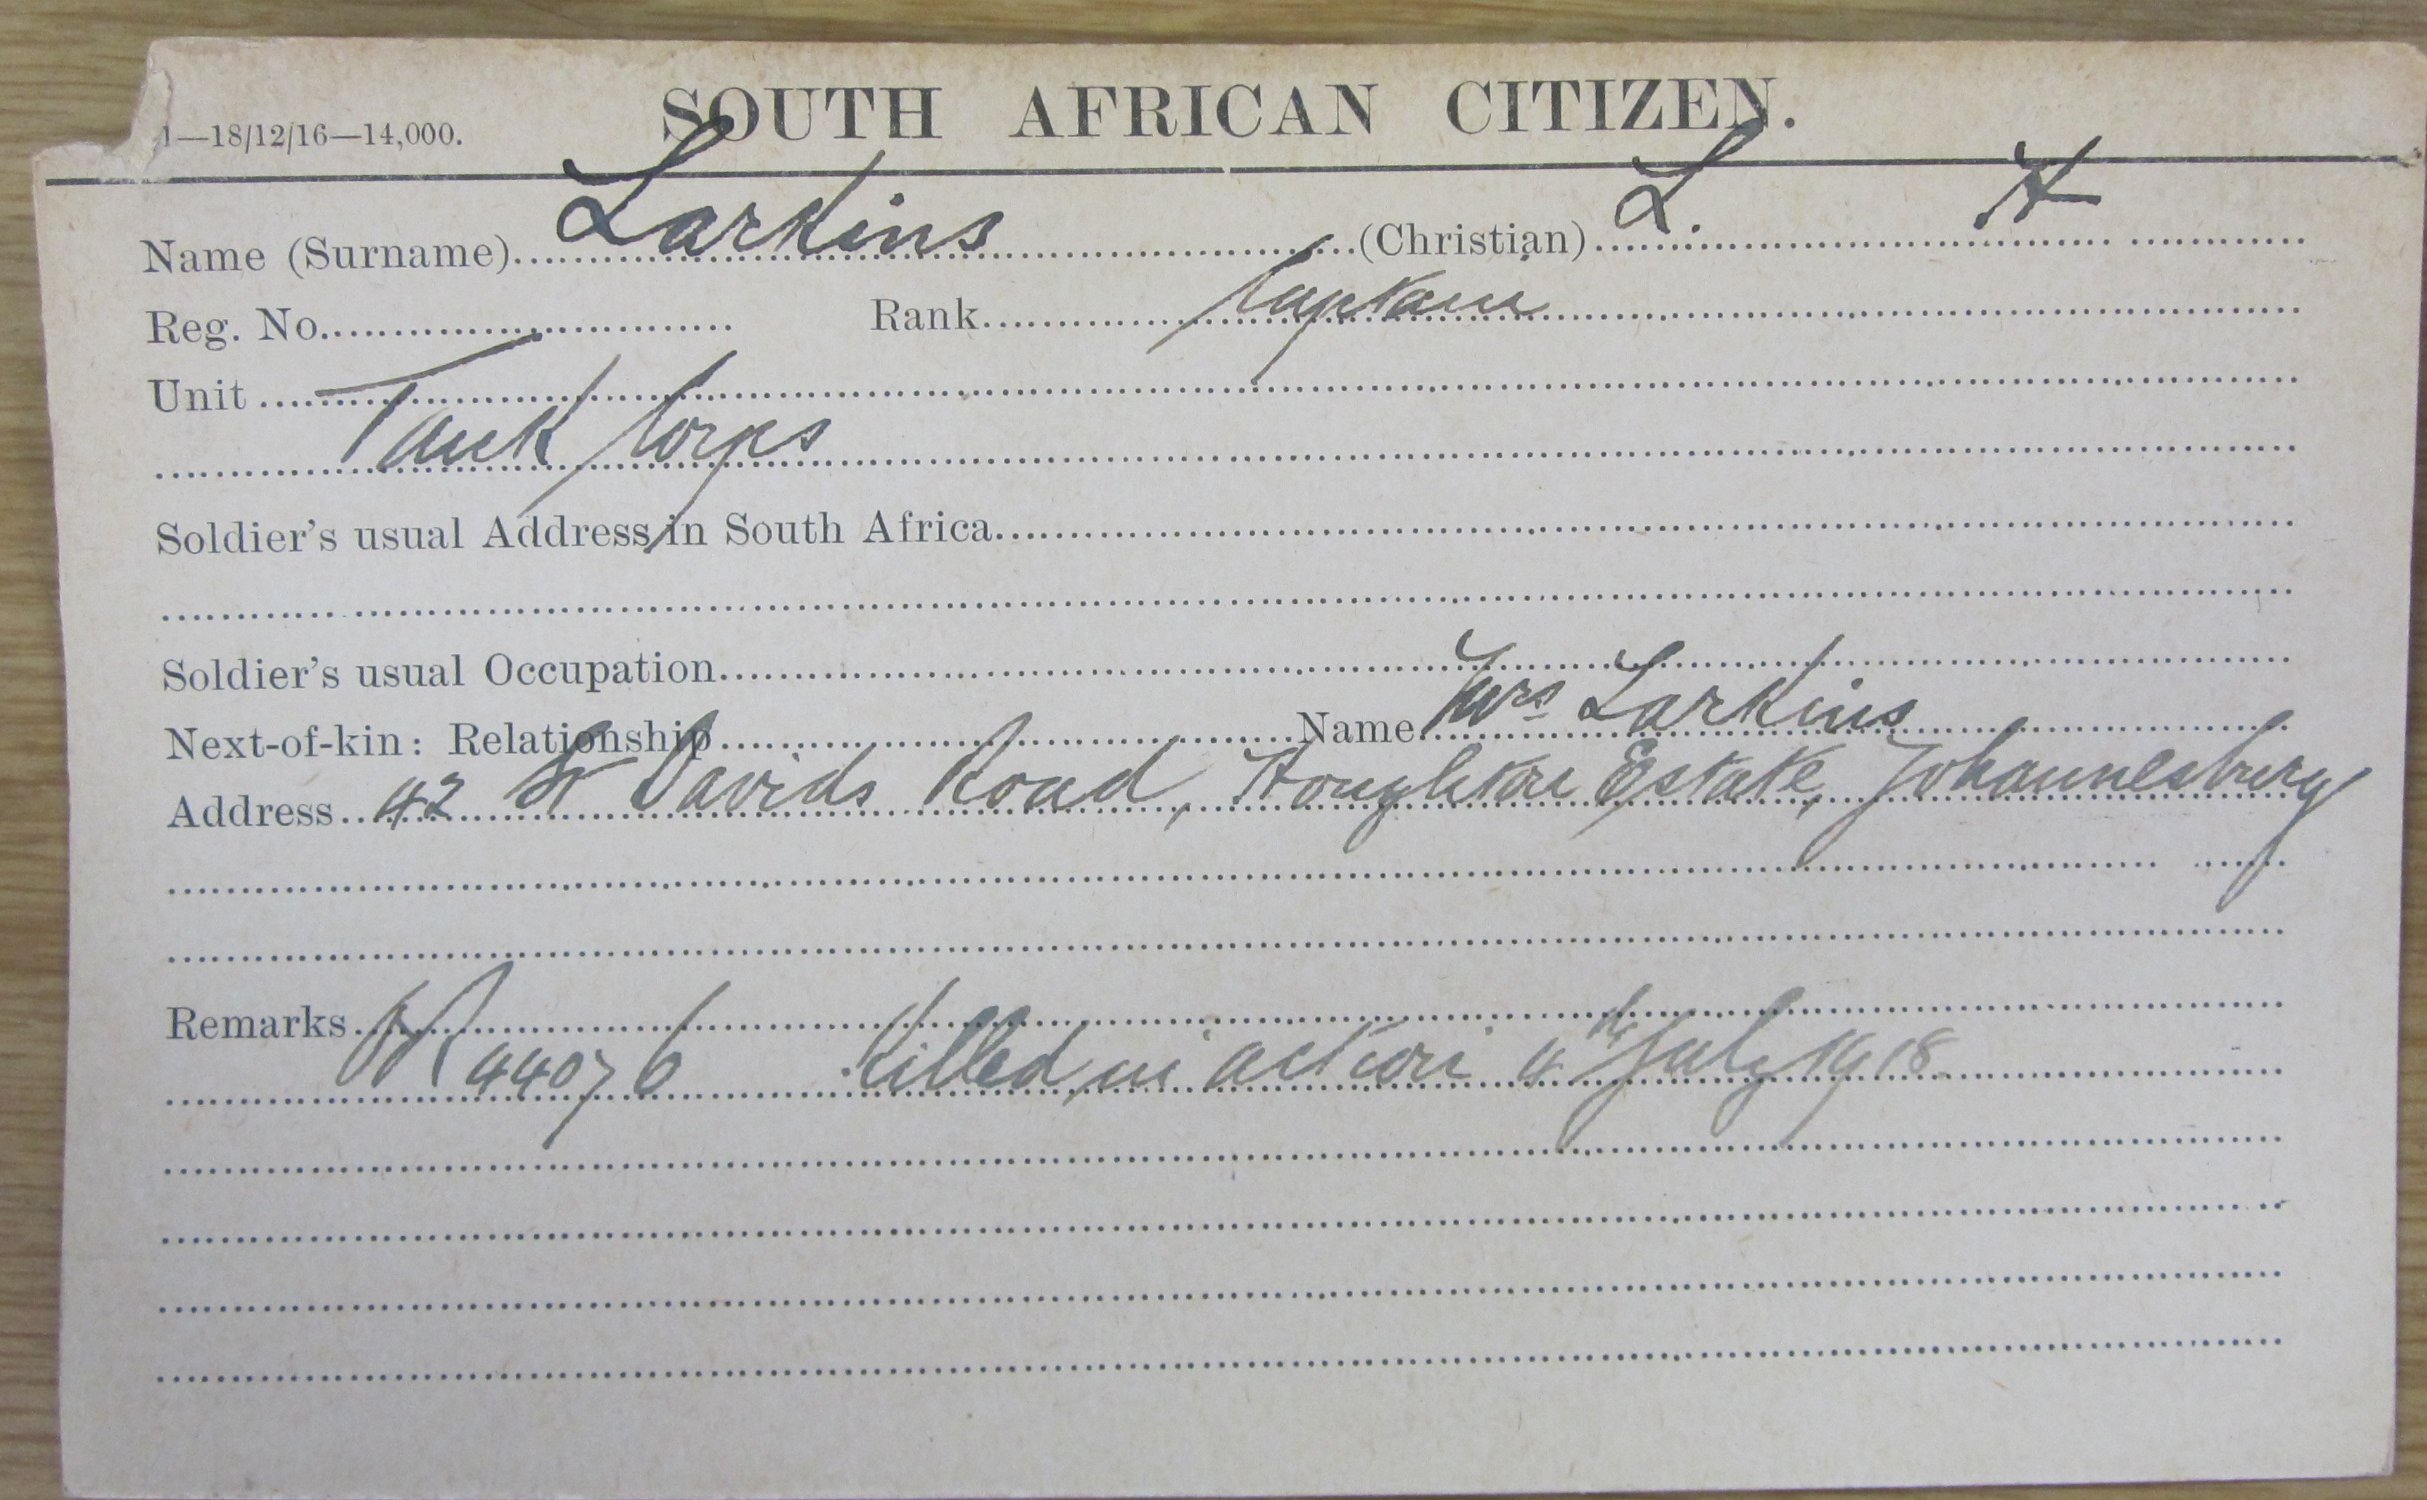 1—18/12/16—14,000.
SOUTH AFRICAN CITIZEN.
Name (Surname) Larkins (Christian) L. H
Reg. No. Rank Captain
Unit
Tank Corps
Soldier's usual Address in South Africa
Soldier's usual Occupation
Next-of-kin: Relationship Name Mrs Larkins
Address 42 St Davids Road, Houghton Estate, Johannesburg
Remarks
44076 Killed in action 4th July 1918